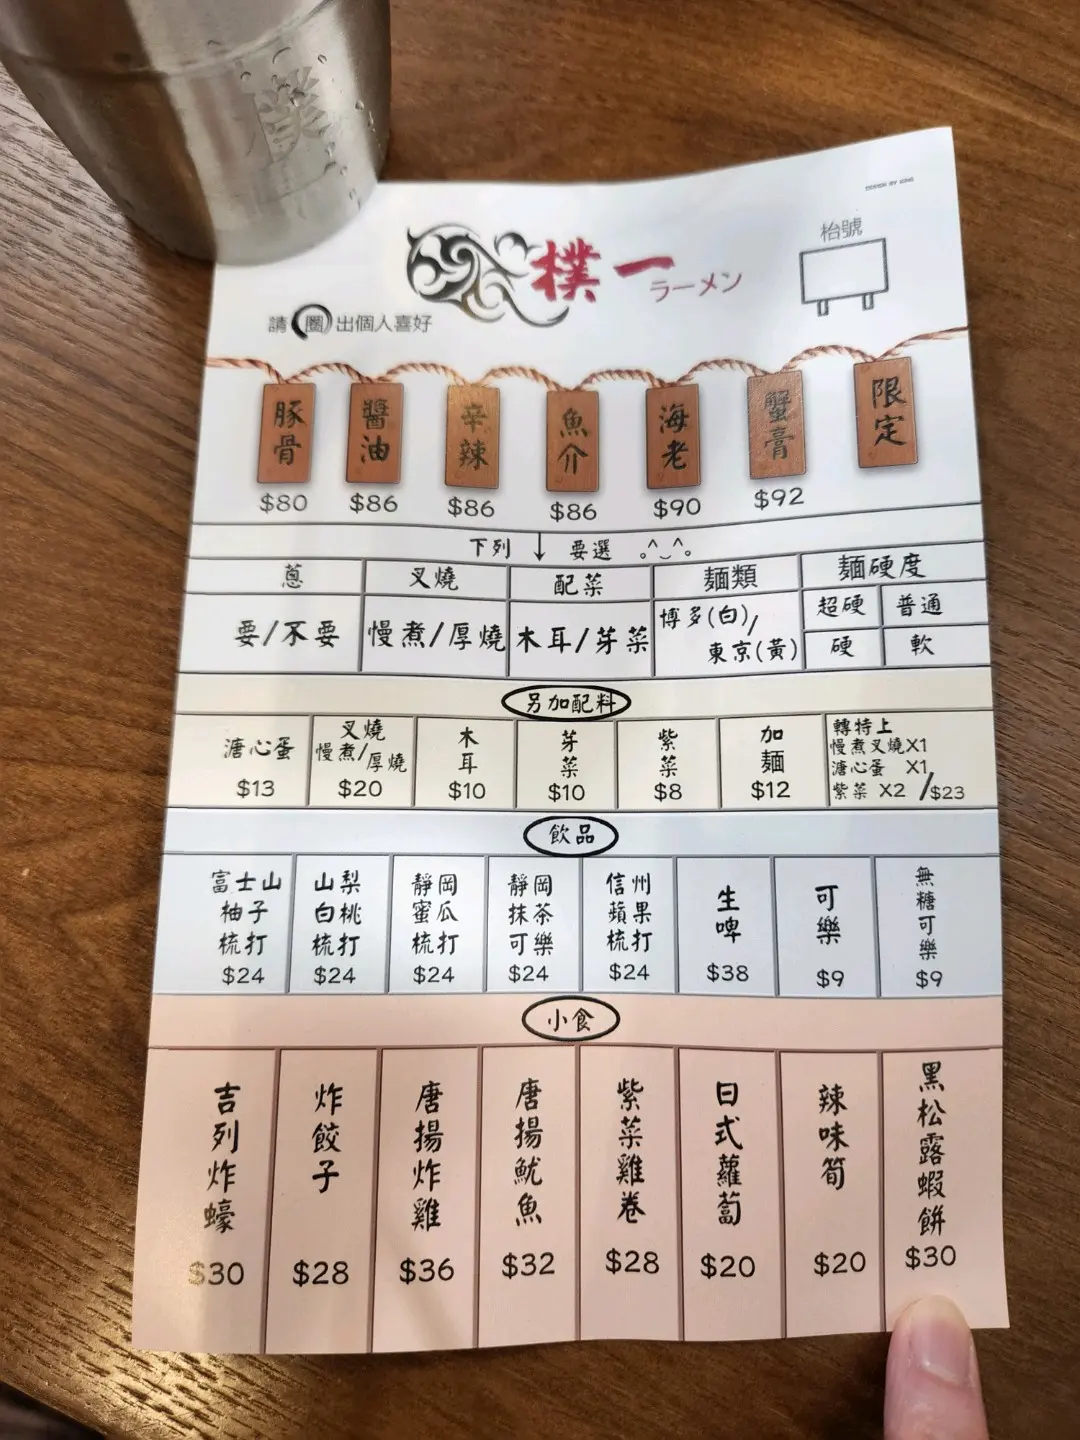 樸
DESIGN BY KING
樸一
ラーメン
枱號
請圈出個人喜好
豚骨 醬油 辛辣 魚介 海老 蟹膏 限定
$80 $86 $86 $86 $90 $92
下列 ↓ 要選 。^‿^。
蔥 叉燒 配菜 麵類 麵硬度
要/不要 慢煮/厚燒 木耳/芽菜 博多(白)/東京(黃) 超硬 普通
硬 軟
另加配料
溏心蛋 $13
叉燒 慢煮/厚燒 $20
木耳 $10
芽菜 $10
紫菜 $8
加麵 $12
轉特上
慢煮叉燒X1
溏心蛋 X1
紫菜 X2 /$23
飲品
富士山柚子梳打 $24
山梨白桃梳打 $24
靜岡蜜瓜梳打 $24
靜岡抹茶可樂 $24
信州蘋果梳打 $24
生啤 $38
可樂 $9
無糖可樂 $9
小食
吉列炸蠔 $30
炸餃子 $28
唐揚炸雞 $36
唐揚魷魚 $32
紫菜雞卷 $28
日式蘿蔔 $20
辣味筍 $20
黑松露蝦餅 $30